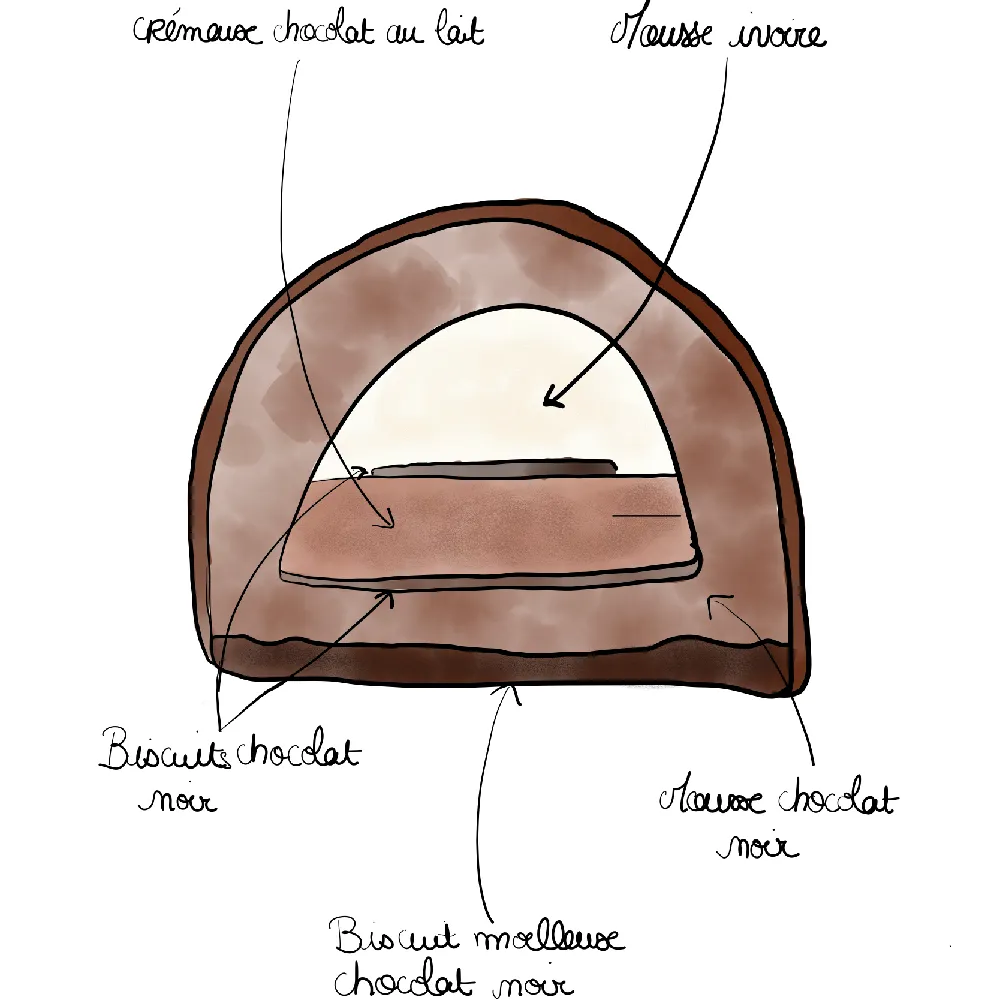 crémeuse chocolat au lait
Mousse ivoire
Biscuits chocolat
noir
Mousse chocolat
noir
Biscuit moelleuse
chocolat noir